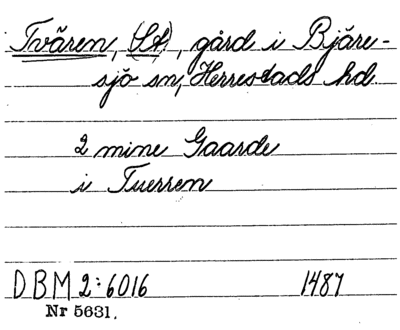 Tvären, (St), gård i Bjäre-
sjö sn, Herrestads hd.
2 mine Gaarde
i Tuerren
DBM 2:6016 1487
Nr 5631.